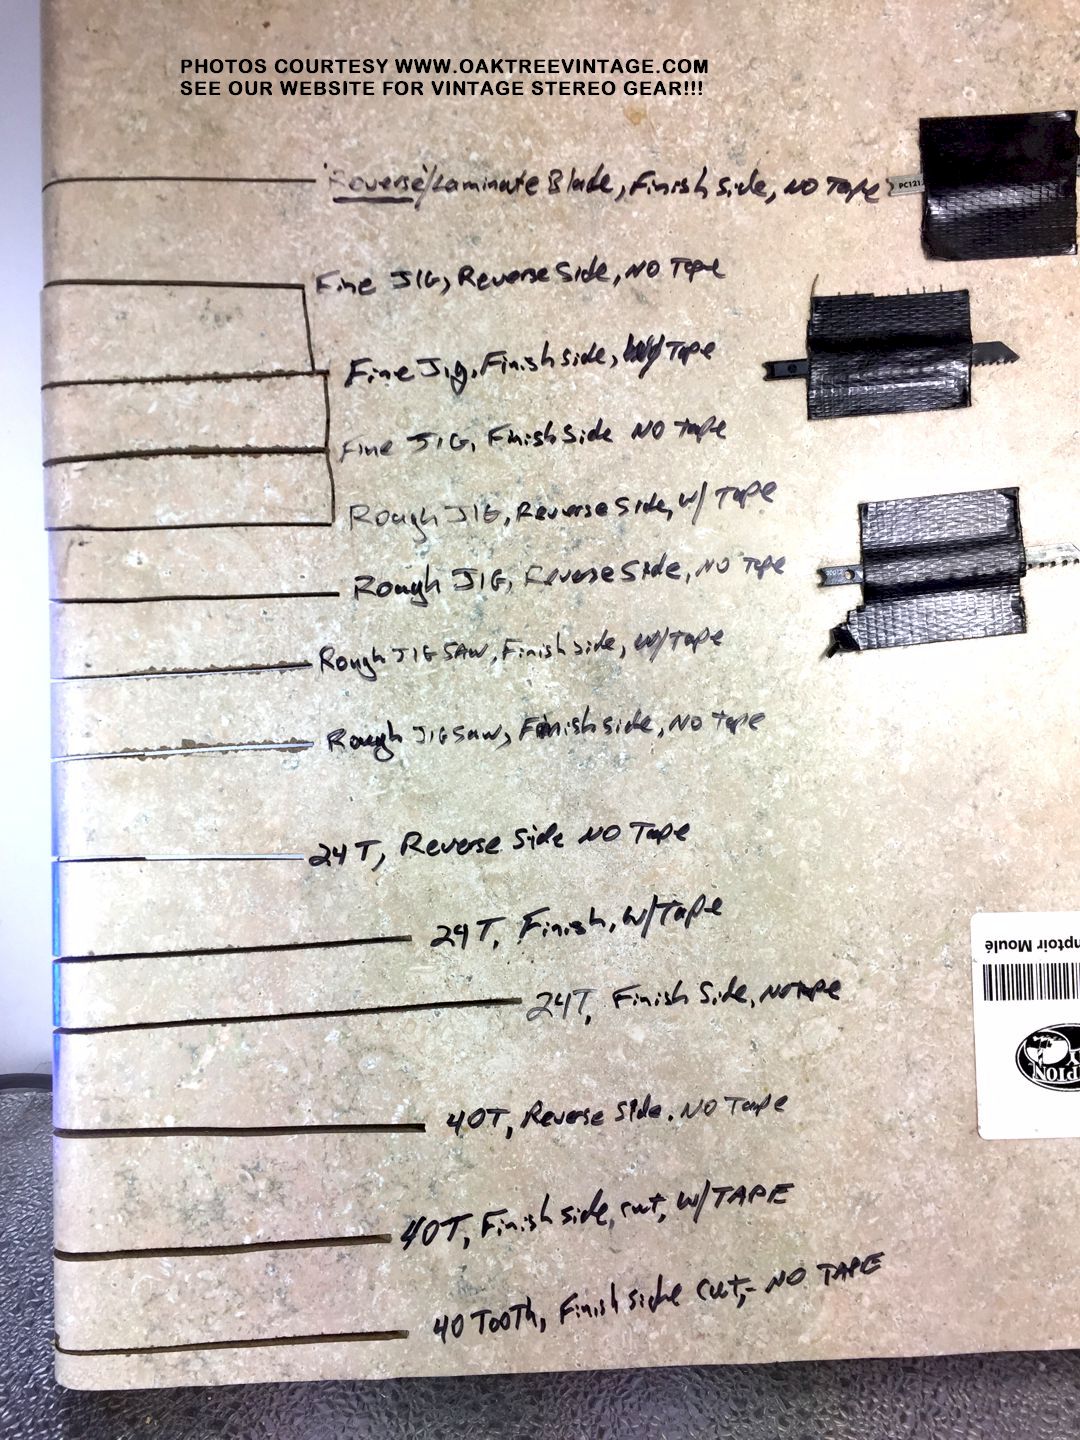 PHOTOS COURTESY WWW.OAKTREEVINTAGE.COM
SEE OUR WEBSITE FOR VINTAGE STEREO GEAR!!!
Reverse/Laminate Blade, Finish Side, NO Tape
PC121
Fine JIG, Reverse Side, NO Tape
Fine Jig, Finish side, W/ Tape
Fine JIG, Finish Side NO Tape
Rough JIG, Reverse Side, W/ Tape
Rough JIG, Reverse Side, NO Tape
Rough JIG SAW, Finish side, W/Tape
Rough JIGSaw, Finish side, NO Tape
24T, Reverse Side NO Tape
24T, Finish, W/Tape
mptoir Moulé
24T, Finish Side, NO TAPE
PTON
40T, Reverse Side, NO Tape
40T, Finish side, cut, W/TAPE
40 TOOTh, Finish side cut,- NO TAPE